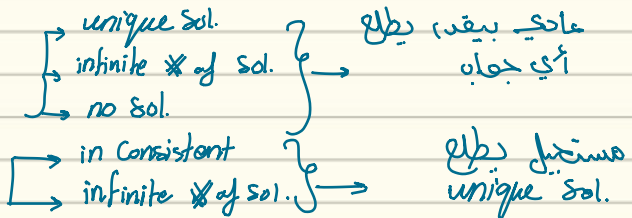 unique sol.
infinite # of sol.
no sol.
عادي بيقدر يطلع
أي جواب
in Consistent
infinite # of sol.
مستحيل يطلع
unique sol.